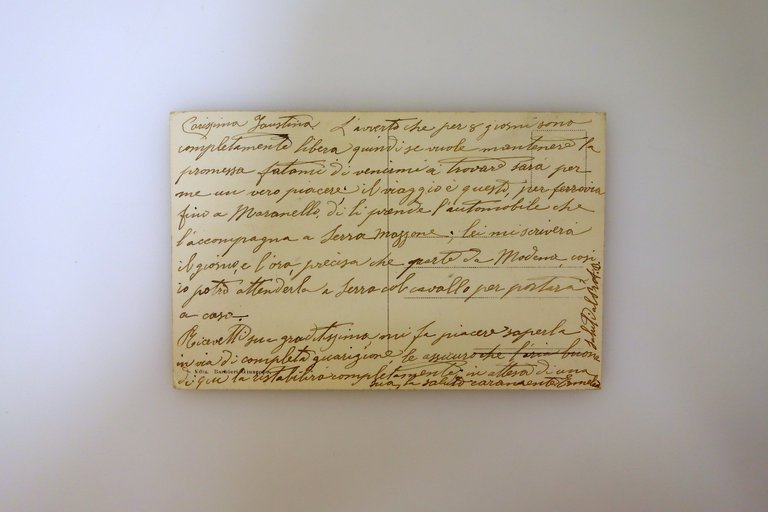 Carissima Faustina. L'avverto che per 8 giorni sono
completamente libera quindi se vuole mantenere la
promessa fatami di venirmi a trovare sarà per
me un vero piacere: il viaggio è questo, per ferrovia
fino a Maranello, di lì prende l'automobile che
l'accompagna a Serra Mazzone; lei mi scriverà
il giorno, e l'ora, precisa che parte da Modena, così
io potrò attenderla a Serra col cavallo per portarla
a casa.
Ricevetti sua graditissima mi fa piacere saperla
in via di completa guarigione le assicuro che l'aria buona
di qui la ristabilirà completamente in attesa di una
sua, la saluto caramente
Edta. Barbieri